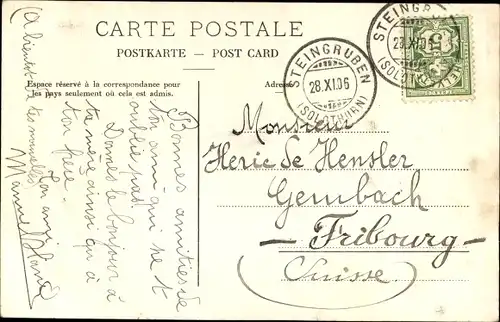 CARTE POSTALE
POSTKARTE - POST CARD
Espace réservé à la correspondance pour
les pays seulement où cela est admis.
Adresse
STEINGRUBEN
28.XI.06
(SOLOTHURN)
STEINGR
28.XI.0
(SOLOTH
5
Bonnes amitiés de
ton ami qui ne t
oublie pas
Donnes le bonjour à
ta mère ainsi qu à
ton père.
Ton ami
(A bientôt de tes nouvelles)
Monsieur
Herie de Hensler
Gembach
- Fribourg -
(Suisse)